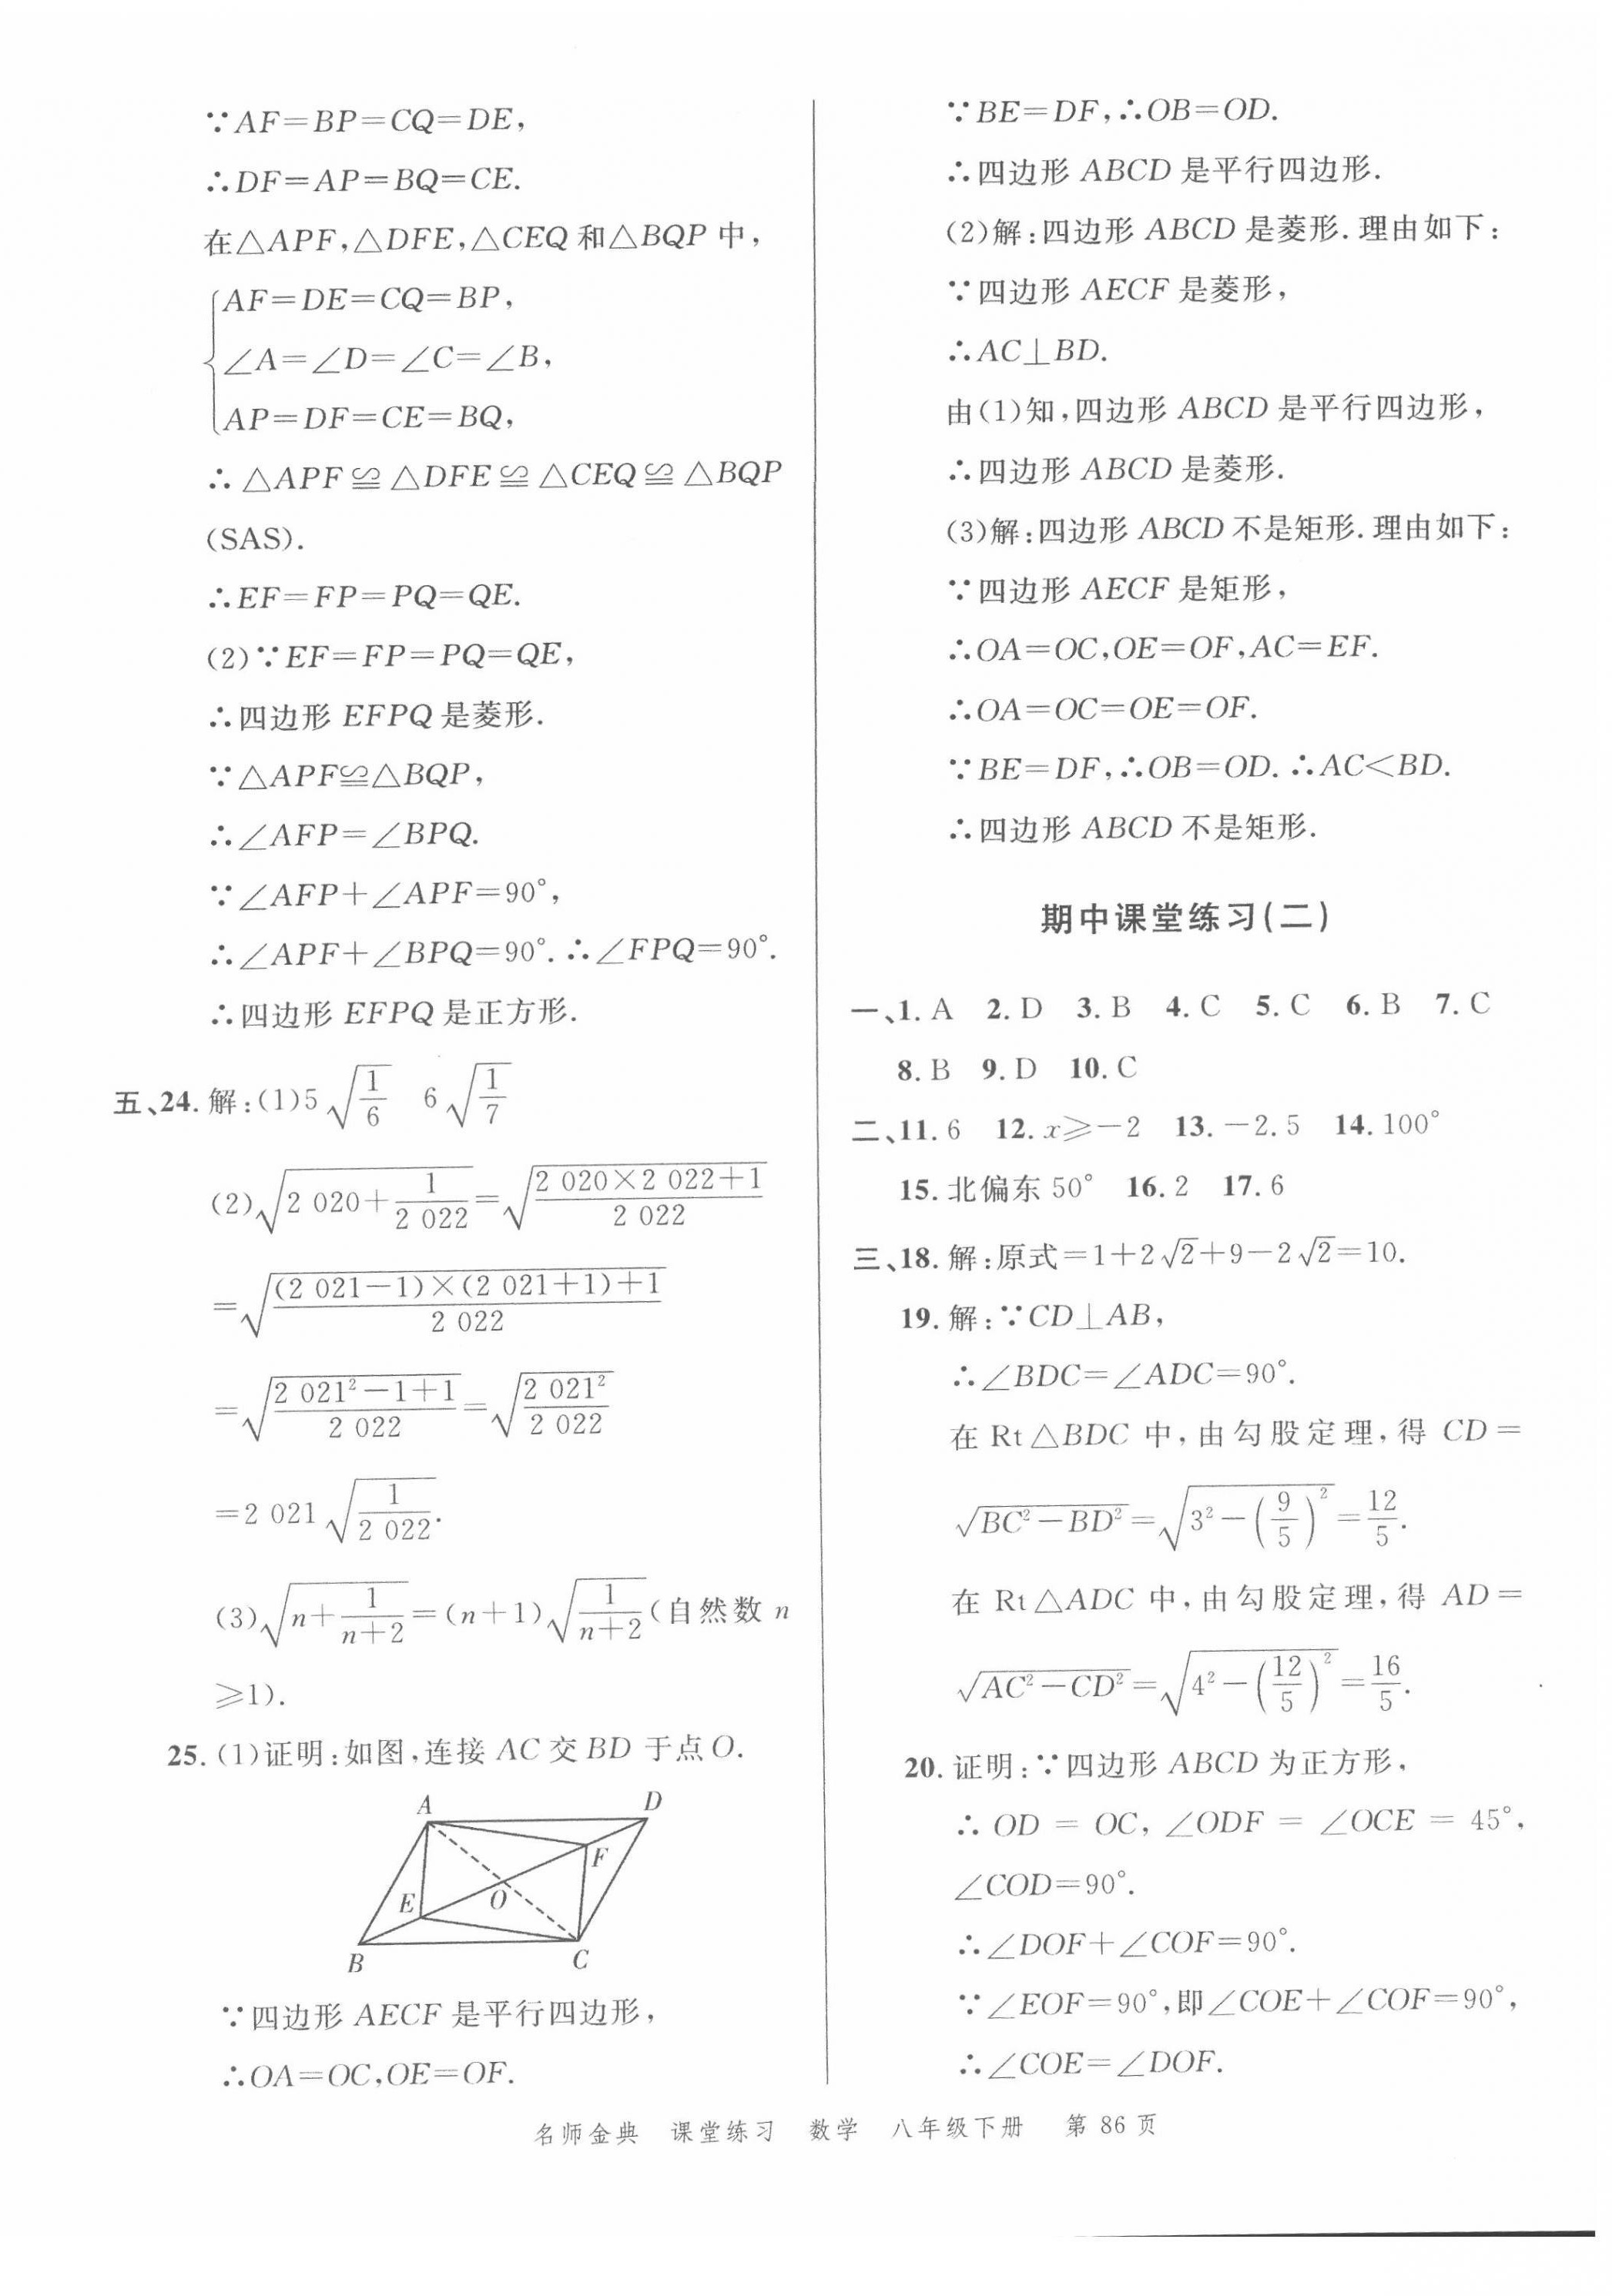 ∵AF=BP=CQ=DE,
∴DF=AP=BQ=CE.
在△APF,△DFE,△CEQ和△BQP中,
AF=DE=CQ=BP,
∠A=∠D=∠C=∠B,
AP=DF=CE=BQ,
∴△APF≌△DFE≌△CEQ≌△BQP
(SAS).
∴EF=FP=PQ=QE.
(2)∵EF=FP=PQ=QE,
∴四边形 EFPQ 是菱形.
∵△APF≌△BQP,
∴∠AFP=∠BPQ.
∵∠AFP+∠APF=90°,
∴∠APF+∠BPQ=90°.∴∠FPQ=90°.
∴四边形 EFPQ 是正方形.
五、24. 解:(1)5√(1/6)  6√(1/7)
(2)√(2 020+1/(2 022))=√((2 020×2 022+1)/(2 022))
=√(((2 021-1)×(2 021+1)+1)/(2 022))
=√((2 021²-1+1)/(2 022))=√((2 021²)/(2 022))
=2 021√(1/(2 022)).
(3)√(n+1/(n+2))=(n+1)√(1/(n+2))(自然数 n
≥1).
25. (1)证明:如图,连接 AC 交 BD 于点 O.
A D
F
E O
B C
∵四边形 AECF 是平行四边形,
∴OA=OC,OE=OF.
∵BE=DF,∴OB=OD.
∴四边形 ABCD 是平行四边形.
(2)解:四边形 ABCD 是菱形.理由如下:
∵四边形 AECF 是菱形,
∴AC⊥BD.
由(1)知,四边形 ABCD 是平行四边形,
∴四边形 ABCD 是菱形.
(3)解:四边形 ABCD 不是矩形.理由如下:
∵四边形 AECF 是矩形,
∴OA=OC,OE=OF,AC=EF.
∴OA=OC=OE=OF.
∵BE=DF,∴OB=OD.∴AC<BD.
∴四边形 ABCD 不是矩形.
期中课堂练习(二)
一、1. A  2. D  3. B  4. C  5. C  6. B  7. C
8. B  9. D  10. C
二、11. 6  12. x≥-2  13. -2.5  14. 100°
15. 北偏东 50°  16. 2  17. 6
三、18. 解:原式=1+2√2+9-2√2=10.
19. 解:∵CD⊥AB,
∴∠BDC=∠ADC=90°.
在 Rt△BDC 中,由勾股定理,得 CD=
√(BC²-BD²)=√(3²-(9/5)²)=12/5.
在 Rt△ADC 中,由勾股定理,得 AD=
√(AC²-CD²)=√(4²-(12/5)²)=16/5.
20. 证明:∵四边形 ABCD 为正方形,
∴OD=OC,∠ODF=∠OCE=45°,
∠COD=90°.
∴∠DOF+∠COF=90°.
∵∠EOF=90°,即∠COE+∠COF=90°,
∴∠COE=∠DOF.
名师金典 课堂练习 数学 八年级下册 第 86 页